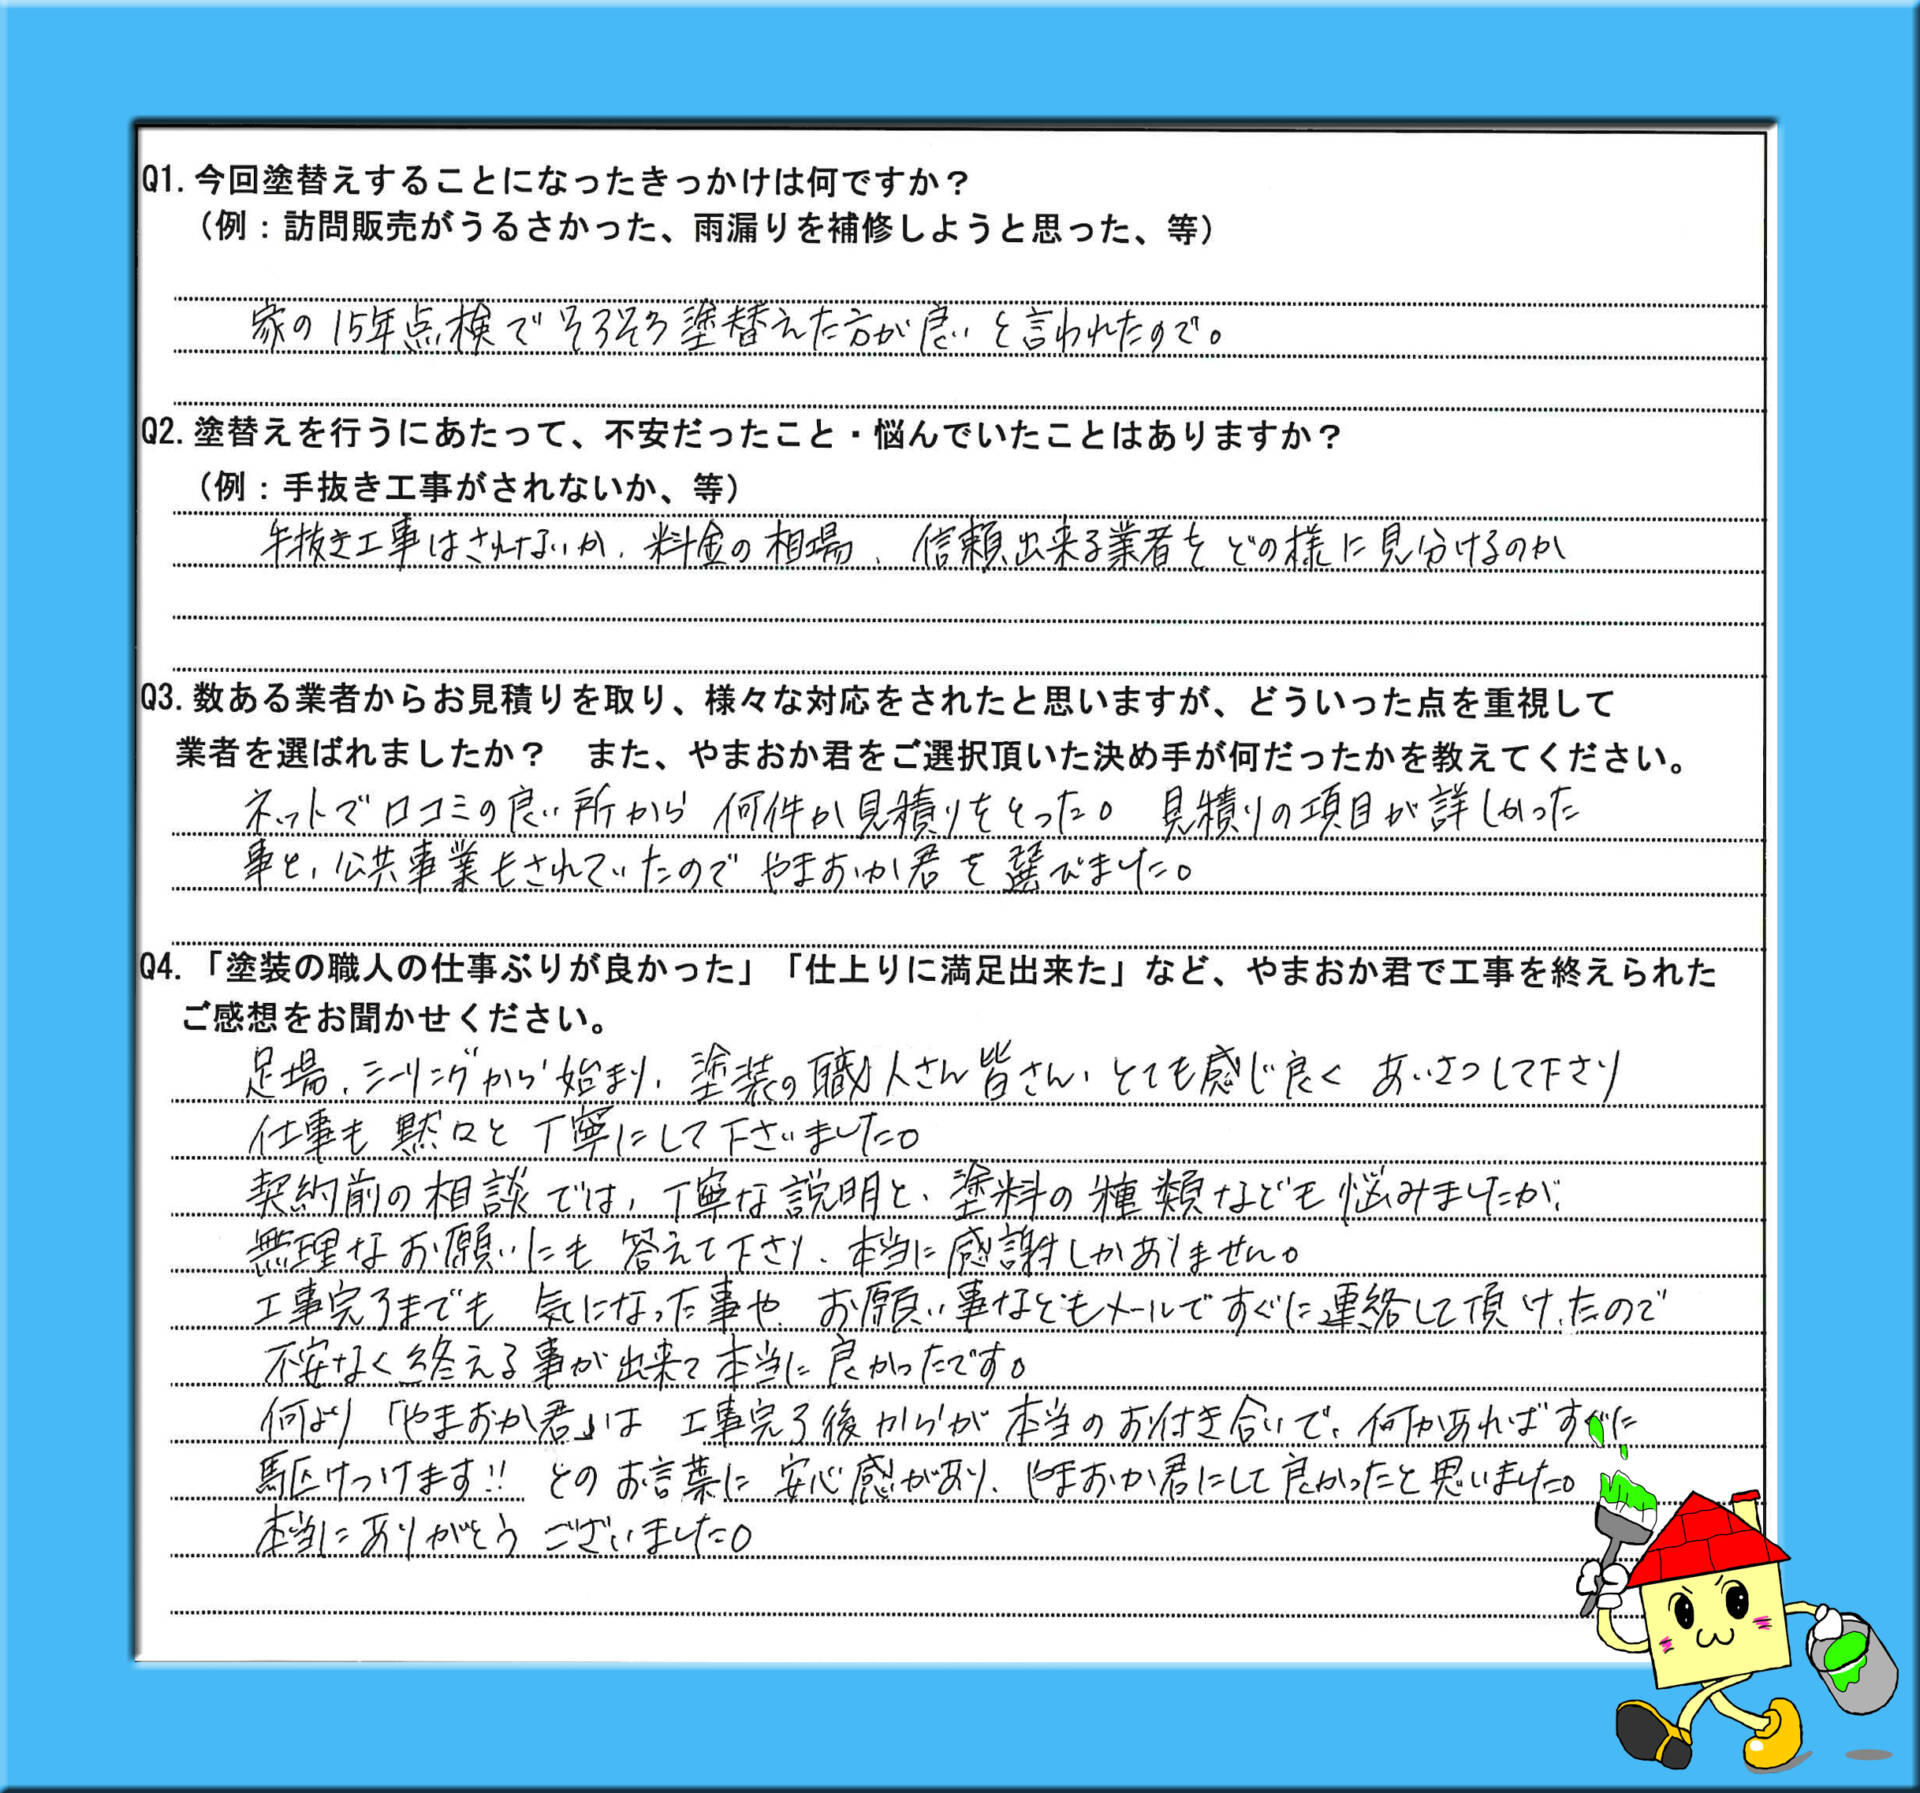 Q1. 今回塗替えすることになったきっかけは何ですか？
（例：訪問販売がうるさかった、雨漏りを補修しようと思った、等）
家の15年点検でそろそろ塗替えた方が良いと言われたので。
Q2. 塗替えを行うにあたって、不安だったこと・悩んでいたことはありますか？
（例：手抜き工事がされないか、等）
手抜き工事はされないか、料金の相場、信頼出来る業者をどの様に見分けるのか
Q3. 数ある業者からお見積りを取り、様々な対応をされたと思いますが、どういった点を重視して
業者を選ばれましたか？　また、やまおか君をご選択頂いた決め手が何だったかを教えてください。
ネットで口コミの良い所から何件か見積りをとった。見積りの項目が詳しかった
事と、公共事業もされていたのでやまおか君を選びました。
Q4. 「塗装の職人の仕事ぶりが良かった」「仕上りに満足出来た」など、やまおか君で工事を終えられた
ご感想をお聞かせください。
足場、シーリングから始まり、塗装の職人さん皆さん、とても感じ良くあいさつして下さり
仕事も黙々と丁寧にして下さいました。
契約前の相談では、丁寧な説明と、塗料の種類なども悩みましたが、
無理なお願いにも答えて下さり、本当に感謝しかありません。
工事完了までも気になった事や、お願い事などもメールですぐに連絡して頂けたので
不安なく終える事が出来て本当に良かったです。
何より「やまおか君」は工事完了後からが本当のお付き合いで、何かあればすぐに
駆けつけます!!とのお言葉に安心感があり、やまおか君にして良かったと思いました。
本当にありがとうございました。